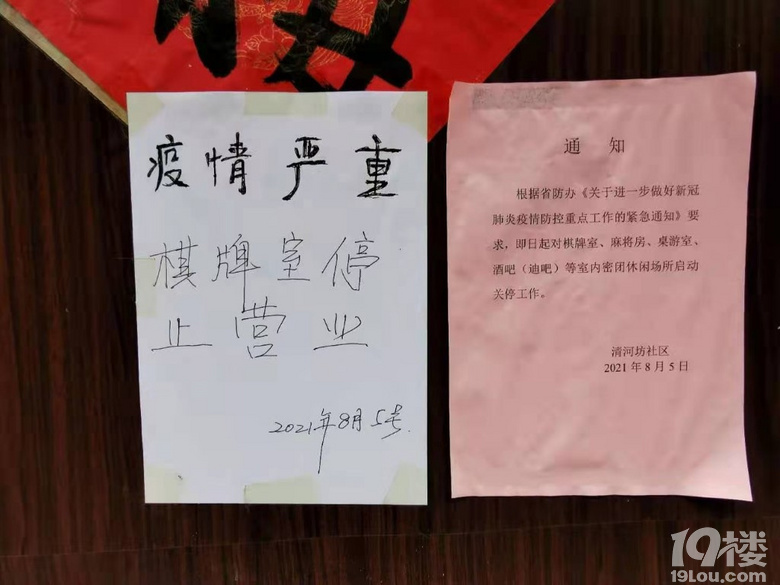 疫情严重
棋牌室停
止营业
2021年8月5号
通 知
根据省防办《关于进一步做好新冠
肺炎疫情防控重点工作的紧急通知》要
求，即日起对棋牌室、麻将房、桌游室、
酒吧（迪吧）等室内密闭休闲场所启动
关停工作。
清河坊社区
2021 年 8 月 5 日
19楼
19lou.com